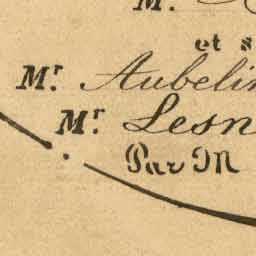 M.
et s
Mr. Aubelin
Mr. Lesn
Par M